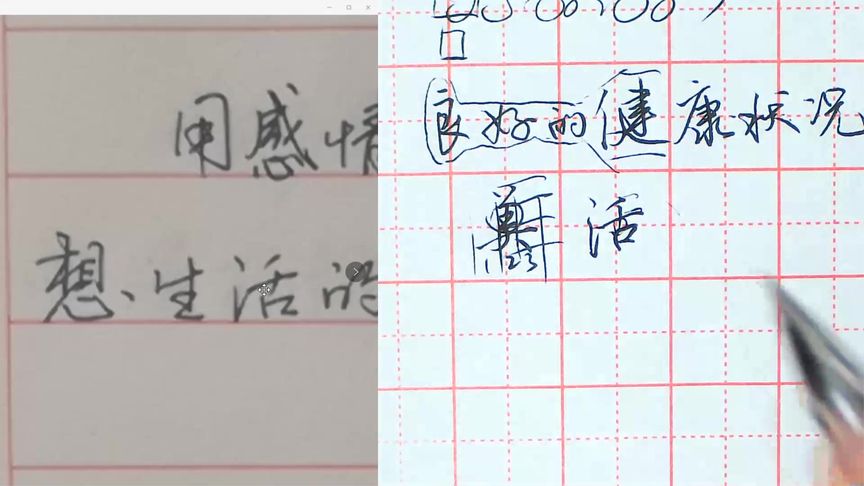 用感情
想、生活的
良好的健康状况
活